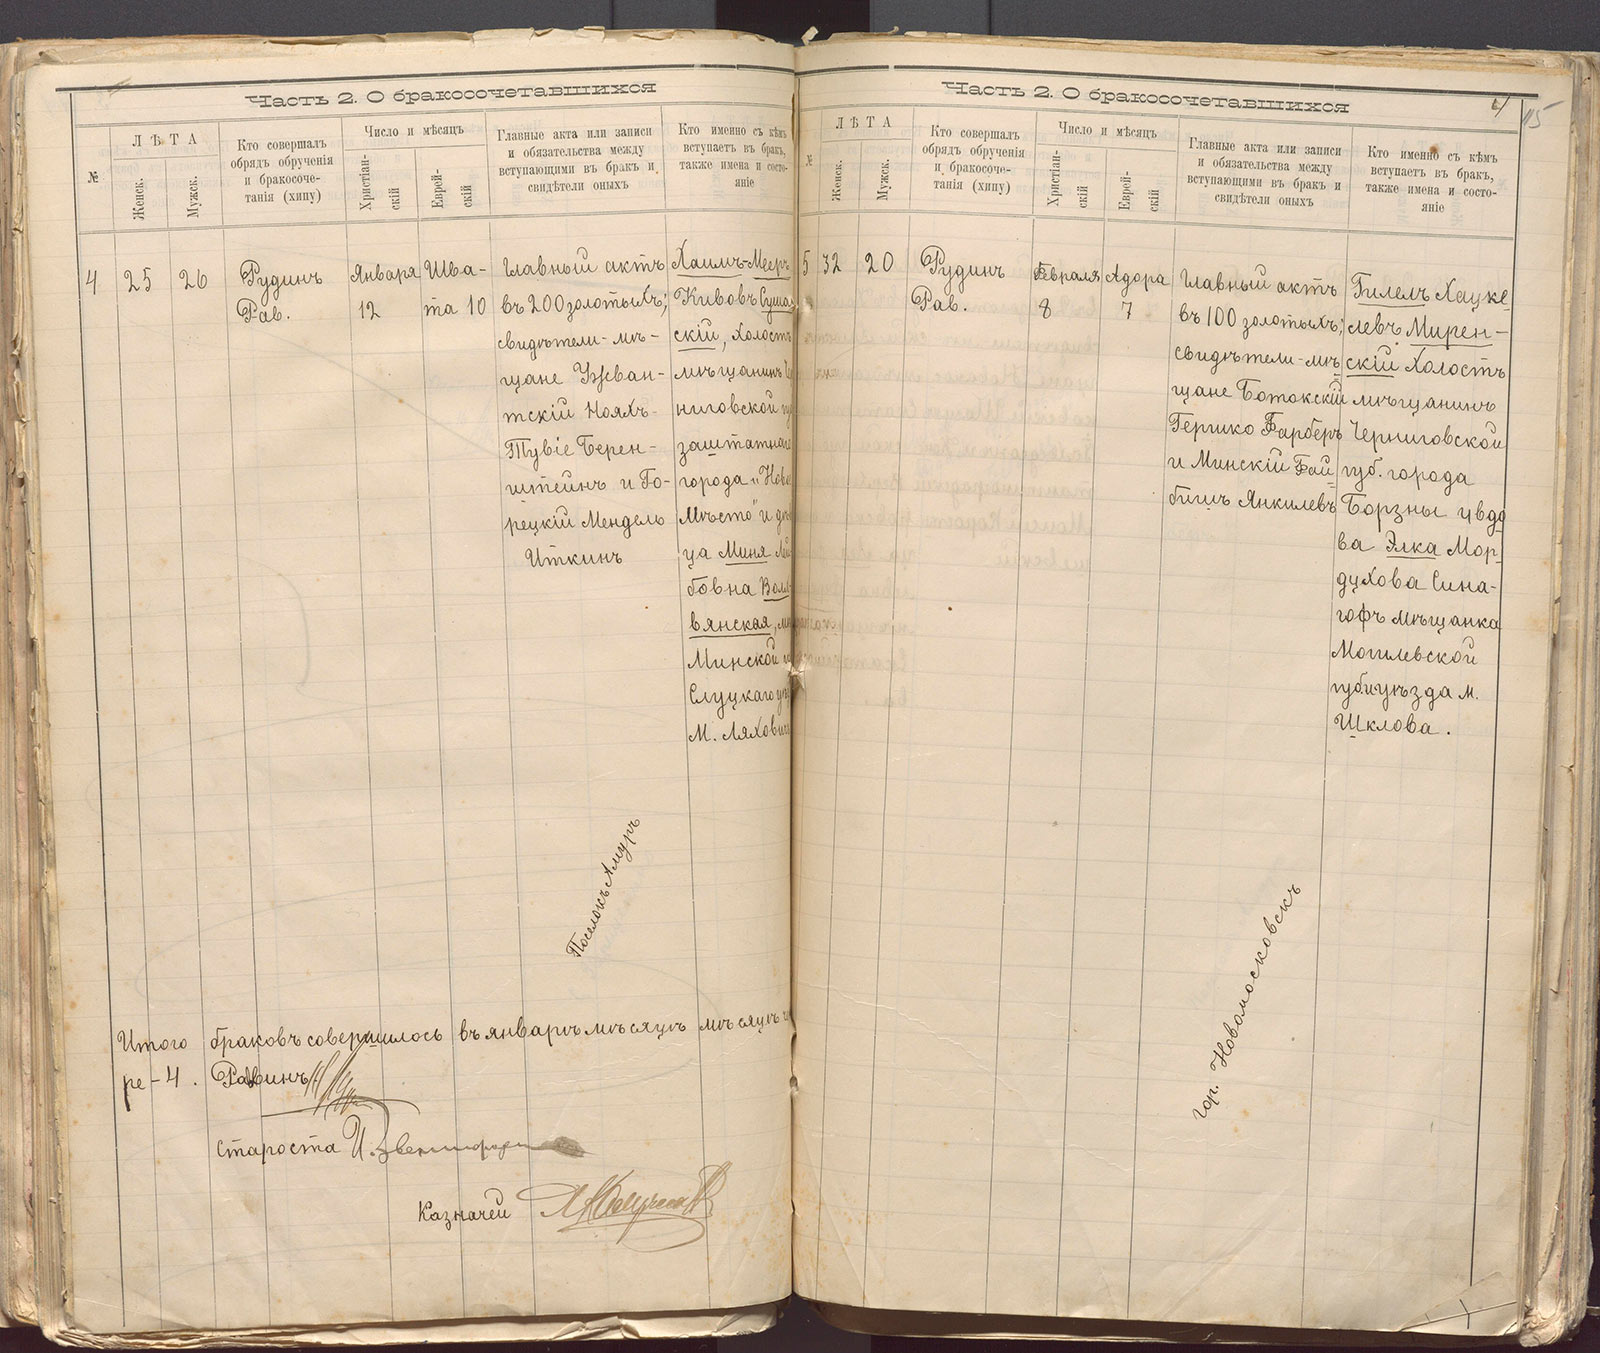 Часть 2. О бракосочетавшихся
№
ЛѢТА
Женск.
Мужск.
Кто совершалъ
обрядъ обрученія
и бракосоче-
танія (хипу)
Число и мѣсяцъ
Христіан-
скій
Еврей-
скій
Главные акта или записи
и обязательства между
вступающими въ бракъ и
свидѣтели оныхъ
Кто именно съ кѣмъ
вступаетъ въ бракъ,
также имена и состо-
яніе
4
25
26
Рудинъ
Рав.
Января
12
Шва-
та 10
Главный актъ
въ 200 золотыхъ;
свидѣтели - мѣ-
щане
тскій Нояхъ-
Тувіе Берен-
штейнъ и Го-
рецкій Мендель
Иткинъ
Хаимъ-Мееръ
Кивовъ
скій, холостъ
мѣщанинъ
ниговской
заштатнаго
города "Ново
Мѣсто" и дѣ
ца Миня
бовна
вянская,
Минской
Слуцкаго
М. Ляхович
Поселокъ Амуръ
Итого браковъ совершилось въ январѣ мѣсяцѣ мѣсяцѣ
ре - 4. Раввинъ
Староста И.
Казначей
Часть 2. О бракосочетавшихся
4
115
№
ЛѢТА
Женск.
Мужск.
Кто совершалъ
обрядъ обрученія
и бракосоче-
танія (хипу)
Число и мѣсяцъ
Христіан-
скій
Еврей-
скій
Главные акта или записи
и обязательства между
вступающими въ бракъ и
свидѣтели оныхъ
Кто именно съ кѣмъ
вступаетъ въ бракъ,
также имена и состо-
яніе
5
32
20
Рудинъ
Рав.
Февраля
8
Адора
7
Главный актъ
въ 100 золотыхъ;
свидѣтели - мѣ
щане Ботокскій
Гершко Фарберъ
и Минскій Фай
бишъ Янкилевъ
Гилелъ Хацке
левъ Мирен-
скій Холостъ
мѣщанинъ
Черниговской
губ. города
Борзны и вдо
ва Элка Мор
духова Сина-
гофъ мѣщанка
Могилевской
губ. и уѣзда м.
Шклова.
гор. Новомосковскъ